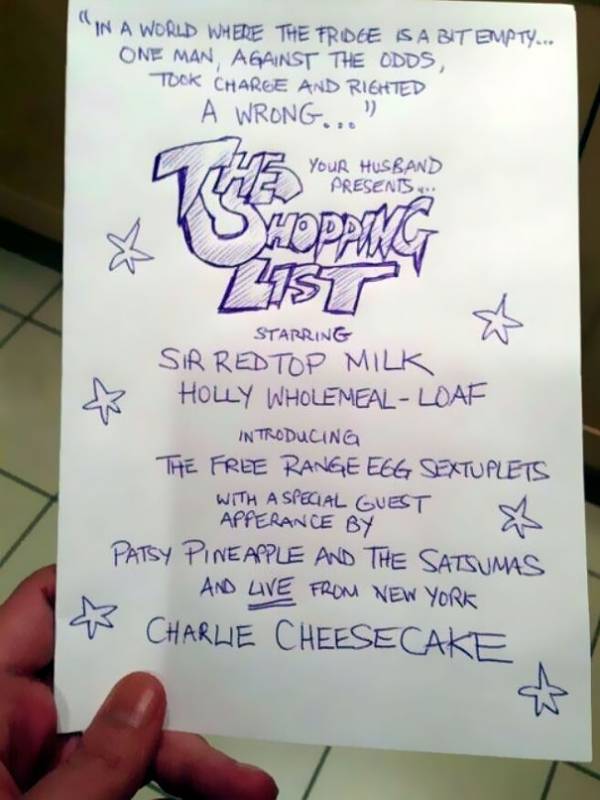 "IN A WORLD WHERE THE FRIDGE IS A BIT EMPTY...
ONE MAN, AGAINST THE ODDS,
TOOK CHARGE AND RIGHTED
A WRONG..."
YOUR HUSBAND
PRESENTS....
THE
SHOPPING
LIST
STARRING
SIR REDTOP MILK
HOLLY WHOLEMEAL-LOAF
INTRODUCING
THE FREE RANGE EGG SEXTUPLETS
WITH A SPECIAL GUEST
APPERANCE BY
PATSY PINEAPPLE AND THE SATSUMAS
AND LIVE FROM NEW YORK
CHARLIE CHEESECAKE